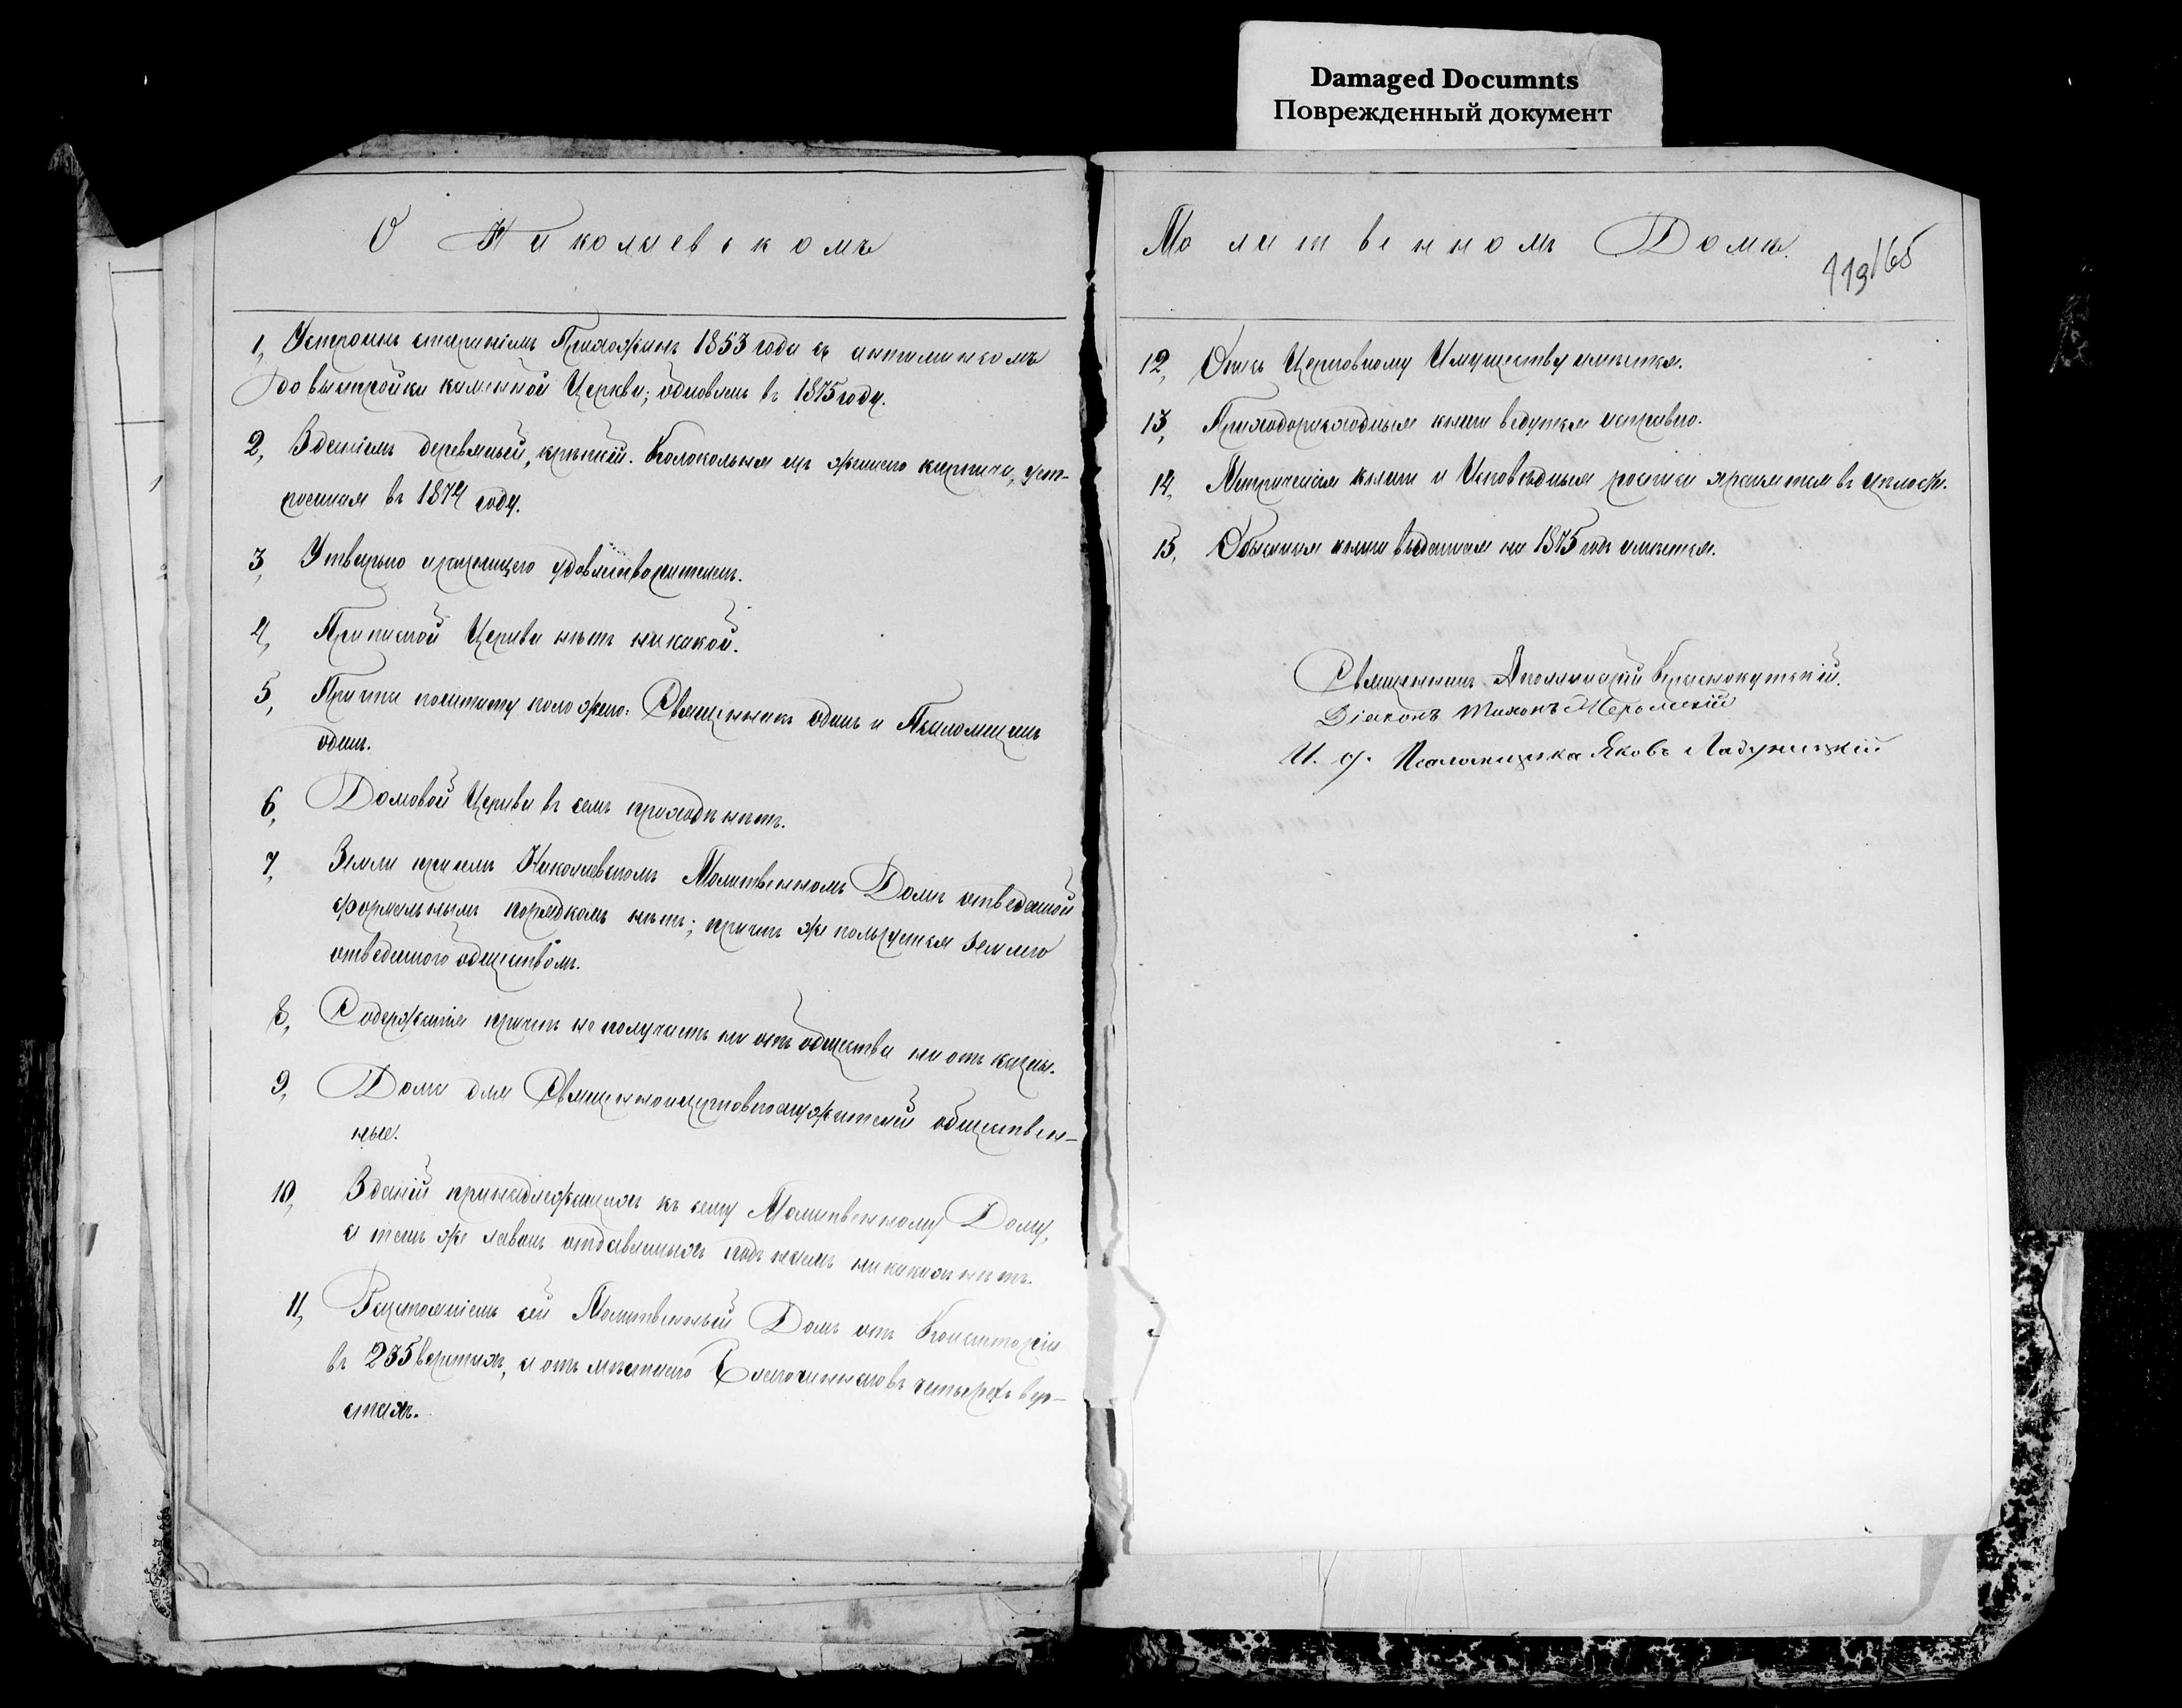 Damaged Documnts
Поврежденный документ
О Николаевскомъ
Молитвенномъ Домѣ.
119/65
1, Устроенъ стараніемъ Прихожанъ 1853 года съ антиминсомъ
до выстройки каменной Церкви; обновленъ въ 1875 году.
2, Зданіемъ деревяный, крѣпкій. Колокольня изъ женаго кирпича, уст-
роенная въ 1874 году.
3, Утварью и ризницею удовлетворителенъ.
4, Приписной Церкви нѣтъ никакой.
5, Причта по штату положено: Священникъ одинъ и Псаломщикъ
одинъ.
6, Домовой Церкви въ семъ приходѣ нѣтъ.
7, Земли при семъ Николаевскомъ Молитвенномъ Домѣ отведенной
формальнымъ порядкомъ нѣтъ; причтъ же пользуется землею
отведенною обществомъ.
8, Содержанія причтъ не получаетъ ни отъ общества ни отъ казны.
9, Дома для Священноцерковнослужителей обществен-
ные.
10, Зданій принадлежащихъ къ сему Молитвенному Дому,
а такъ же лавокъ отдаваемыхъ подъ наемъ никакихъ нѣтъ.
11, Разстояніемъ сей Молитвенный Домъ отъ Консисторіи
въ 235 верстахъ, а отъ мѣстнаго Благочиннаго въ четырехъ вер-
стахъ.
12, Опись Церковному Имуществу имѣется.
13, Приходорасходныя книги ведутся исправно.
14, Метрическія книги и Исповѣдныя росписи хранятся въ цѣлости.
15, Обыскная книга выданная на 1875 годъ имѣется.
Священникъ Аполлинарій Краснокутскій.
Діаконъ Тихонъ
И. д. Псаломщика Яковъ Ладужскій